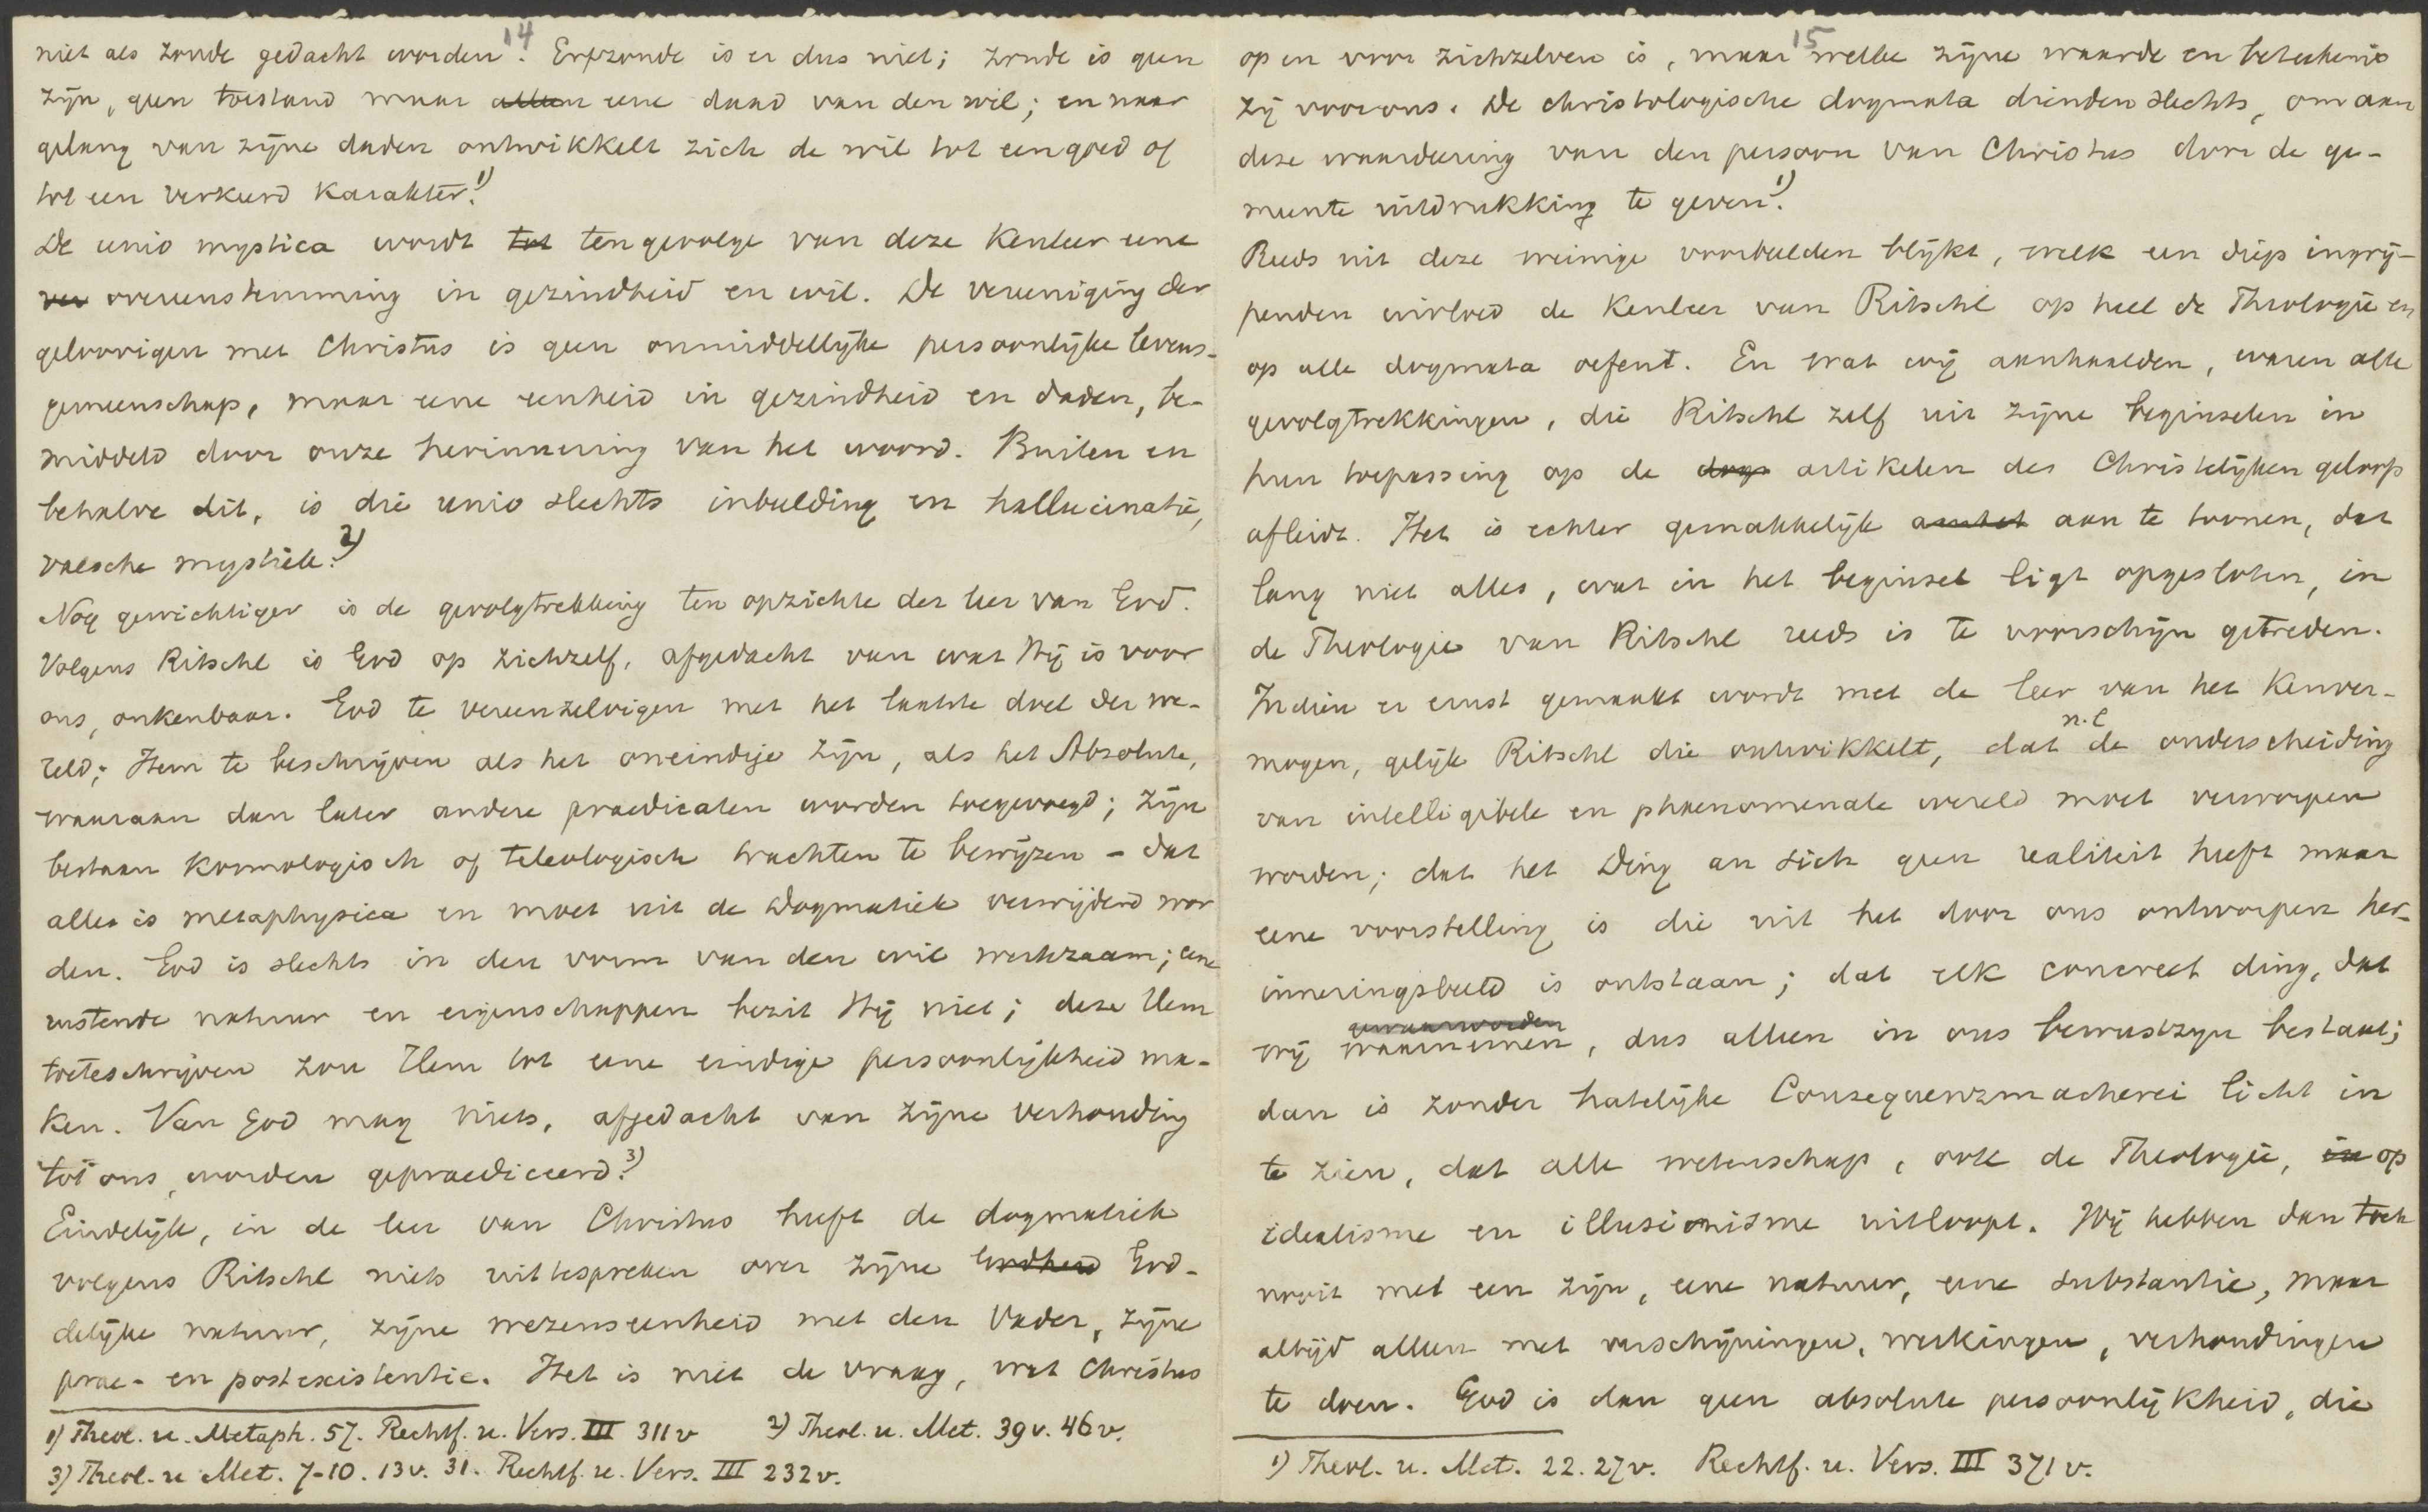 14
niet als zonde gedacht worden. Erfzonde is er dus niet; zonde is geen
zijn, geen toestand maar alleen eene daad van den wil; en naar
gelang van zijne daden ontwikkelt zich de wil tot een goed of
tot een verkeerd karakter.1)
De unio mystica wordt tot tengevolge van deze Kenleer eene
ver overeenstemming in gezindheid en wil. De vereeniging der
geloovigen met Christus is geen onmiddellijke persoonlijke levens-
gemeenschap, maar eene eenheid in gezindheid en daden, be-
middeld door onze herinnering van het woord. Buiten en
behalve dit, is die unio slechts inbeelding en hallucinatie,
valsche mystiek.2)
Nog gewichtiger is de gevolgtrekking ten opzichte der leer van God.
Volgens Ritschl is God op zichzelf, afgedacht van wat Hij is voor
ons, onkenbaar. God te vereenzelvigen met het laatste doel der we-
reld; Hem te beschrijven als het oneindige zijn, als het Absolute,
waaraan dan later andere praedicaten worden toegevoegd; zijn
bestaan kosmologisch of teleologisch trachten te bewijzen - dat
alles is metaphysica en moet uit de Dogmatiek verwijderd wor
den. God is slechts in den vorm van den wil werkzaam; eene
rustende natuur en eigenschappen bezit Hij niet; deze Hem
toeteschrijven zou Hem tot eene eindige persoonlijkheid ma-
ken. Van God mag niets, afgedacht van zijne verhouding
tot ons, worden gepraediceerd.3)
Eindelijk, in de leer van Christus heeft de dogmatiek
volgens Ritschl niets uittespreken over zijne Godheid God-
delijke natuur, zijne wezenseenheid met den Vader, zijne
prae- en postexistentie. Het is niet de vraag, wat Christus
1) Theol. u. Metaph. 57. Rechtf. u. Vers. III 311 v 2) Theol. u. Met. 39 v. 46 v.
3) Theol. u Met. 7-10. 13 v. 31. Rechtf. u. Vers. III 232 v.
15
op en voor zichzelven is, maar welke zijne waarde en beteekenis
zij voor ons. De christologische dogmata dienden slechts, om aan
deze waardeering van den persoon van Christus door de ge-
meente uitdrukking te geven.1)
Reeds uit deze weinige voorbeelden blijkt, welk een diep ingrij-
penden invloed de Kenleer van Ritschl op heel de Theologie en
op alle dogmata oefent. En wat wij aanhaalden, waren alle
gevolgtrekkingen, die Ritschl zelf uit zijne beginselen in
hun toepassing op de dogs artikelen des Christelijken geloofs
afleidt. Het is echter gemakkelijk aan te toonen, dat
lang niet alles, wat in het beginsel ligt opgesloten, in
de Theologie van Ritschl reeds is te voorschijn getreden.
Indien er ernst gemaakt wordt met de leer van het Kenver-
mogen, gelijk Ritschl die ontwikkelt, dat n.l de onderscheiding
van intelligibele en phaenomenale wereld moet verworpen
worden; dat het Ding an sich geen realiteit heeft maar
eene voorstelling is die uit het door ons ontworpen her-
inneringsbeeld is ontstaan; dat elk concreet ding, dat
wij gewaarworden waarnemen, dus alleen in ons bewustzijn bestaat;
dan is zonder hatelijke Consequenzmacherei licht in
te zien, dat alle wetenschap, ook de Theologie, in op
idealisme en illusionisme uitloopt. Wij hebben dan toch
nooit met een zijn, eene natuur, eene substantie, maar
altijd alleen met verschijningen, werkingen, verhoudingen
te doen. God is dan geen absolute persoonlijkheid, die
1) Theol. u. Met. 22. 27 v. Rechtf. u. Vers. III 371 v.